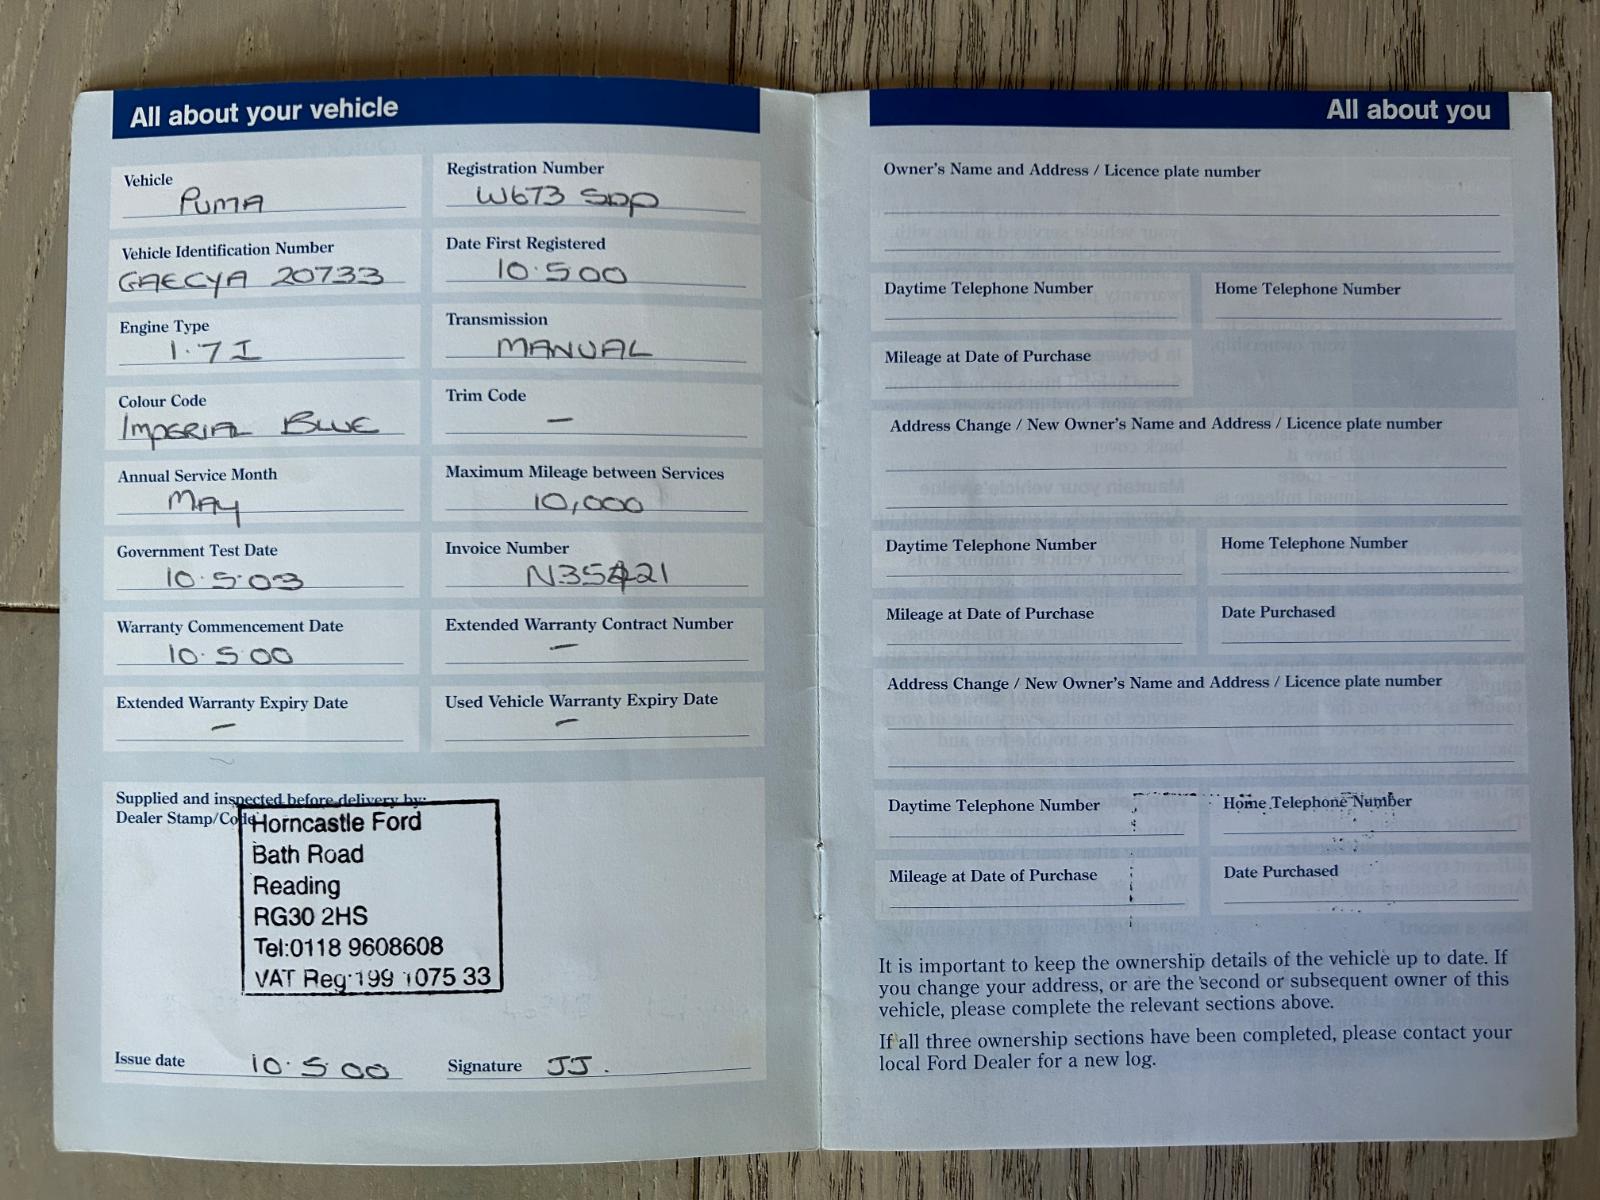 All about your vehicle
Vehicle
PUMA
Registration Number
W673 SDP
Vehicle Identification Number
GAECYA 20733
Date First Registered
10·5 00
Engine Type
1·7I
Transmission
MANUAL
Colour Code
IMPERIAL BLUE
Trim Code
—
Annual Service Month
MAY
Maximum Mileage between Services
10,000
Government Test Date
10·5·03
Invoice Number
Warranty Commencement Date
10·5 00
Extended Warranty Contract Number
—
Extended Warranty Expiry Date
—
Used Vehicle Warranty Expiry Date
—
Supplied and inspected before delivery by:
Dealer Stamp/Code
Horncastle Ford
Bath Road
Reading
RG30 2HS
Tel:0118 9608608
VAT Reg·199 1075 33
Issue date 10·5 00 Signature JJ.
All about you
Owner's Name and Address / Licence plate number
Daytime Telephone Number
Home Telephone Number
Mileage at Date of Purchase
Address Change / New Owner's Name and Address / Licence plate number
Daytime Telephone Number
Home Telephone Number
Mileage at Date of Purchase
Date Purchased
Address Change / New Owner's Name and Address / Licence plate number
Daytime Telephone Number
Home Telephone Number
Mileage at Date of Purchase
Date Purchased
It is important to keep the ownership details of the vehicle up to date. If
you change your address, or are the second or subsequent owner of this
vehicle, please complete the relevant sections above.
If all three ownership sections have been completed, please contact your
local Ford Dealer for a new log.